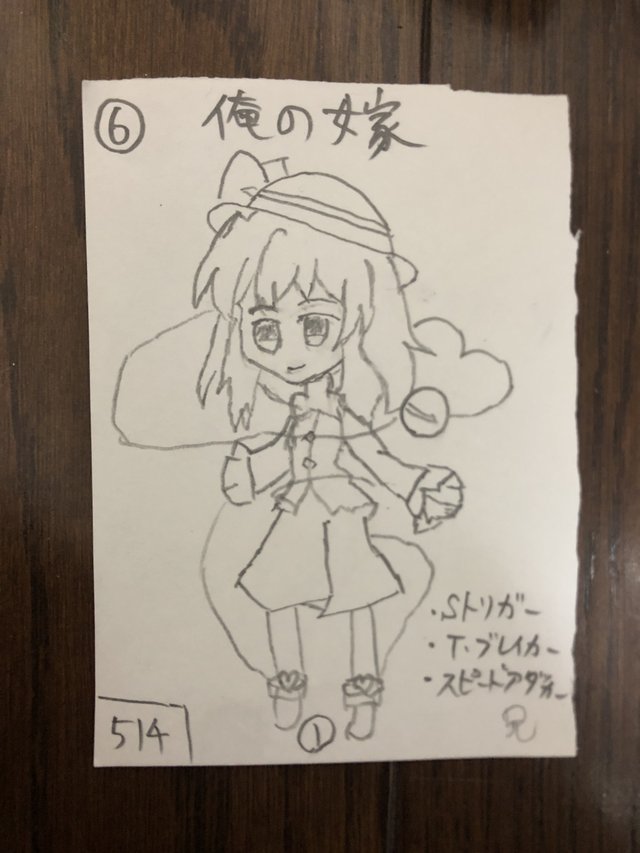 ⑥ 俺の嫁
・Sトリガー
・T・ブレイカー
・スピードアタッカー
兄
514
①